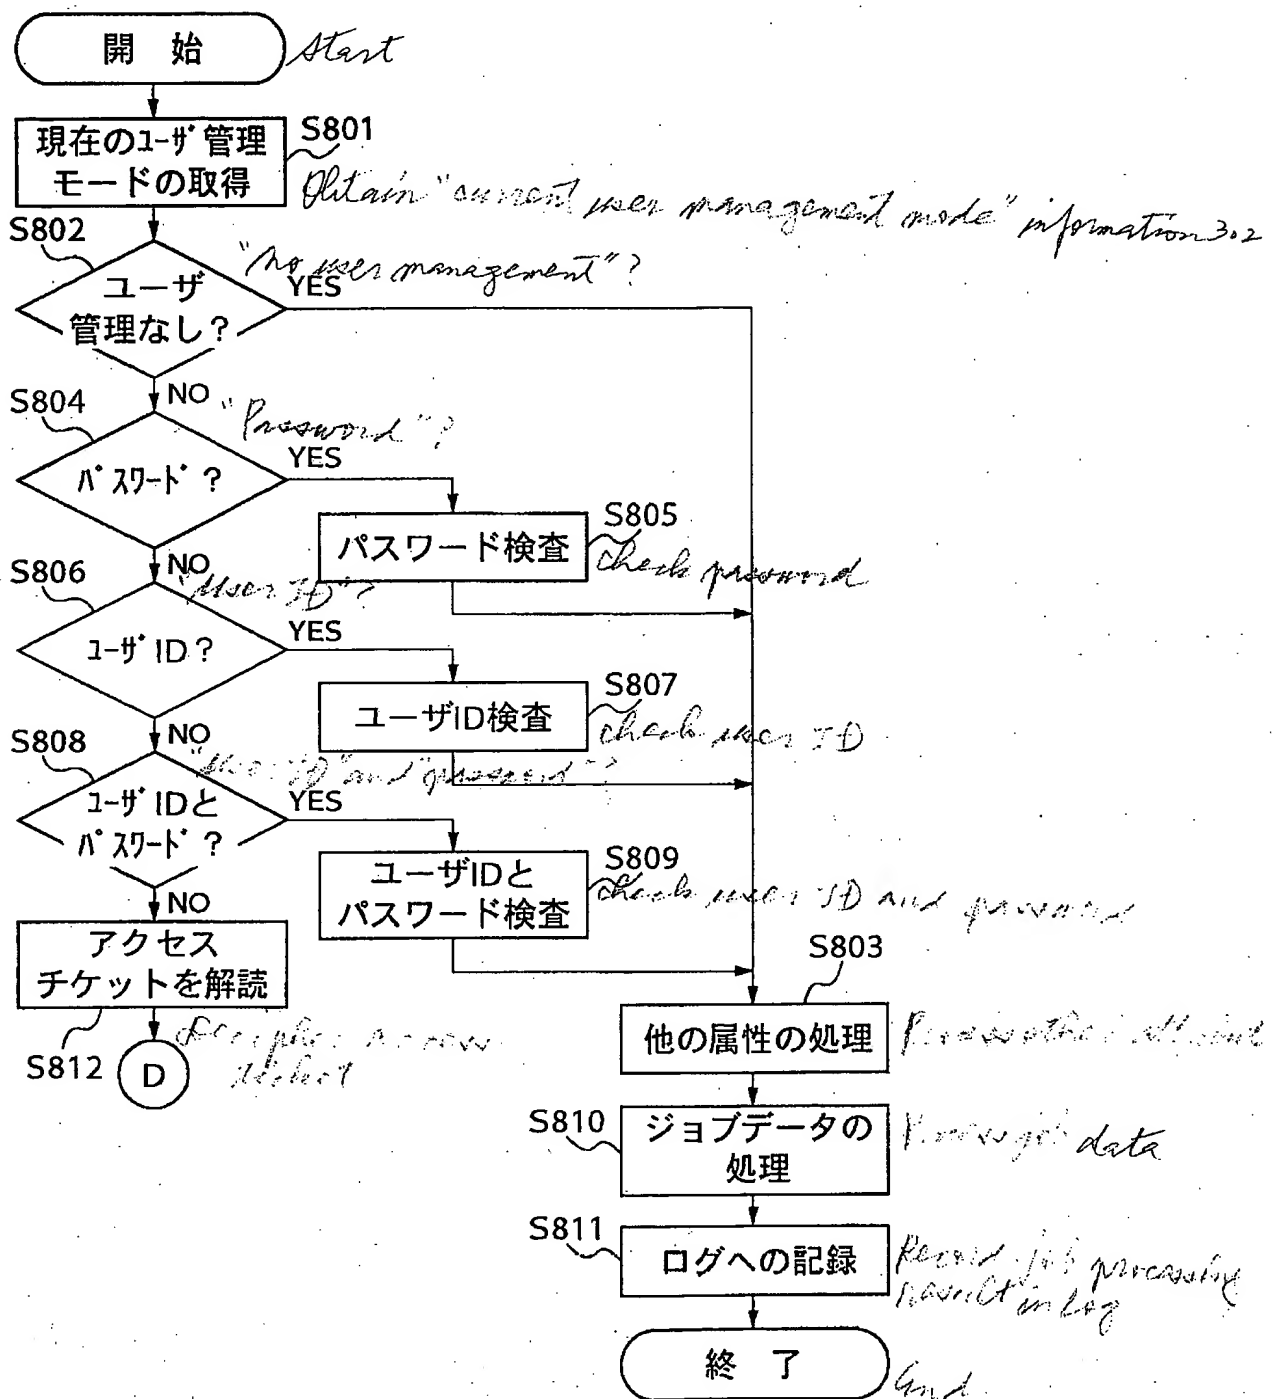 開 始
Start
現在のﾕｰｻﾞ管理
モードの取得
S801
Obtain "current user management mode" information 302
S802
"No user management"?
ユーザ
管理なし？
YES
NO
S804
"Password"?
ﾊﾟｽﾜｰﾄﾞ？
YES
パスワード検査
S805
check password
NO
S806
"User ID"?
ﾕｰｻﾞID？
YES
ユーザID検査
S807
check user ID
NO
S808
"User ID" and "password"?
ﾕｰｻﾞIDと
ﾊﾟｽﾜｰﾄﾞ？
YES
ユーザIDと
パスワード検査
S809
check user ID and password
NO
アクセス
チケットを解読
S812
Decipher access
ticket
D
S803
他の属性の処理
Process other
S810
ジョブデータの
処理
Process job data
S811
ログへの記録
Record job processing
result in log
終 了
End